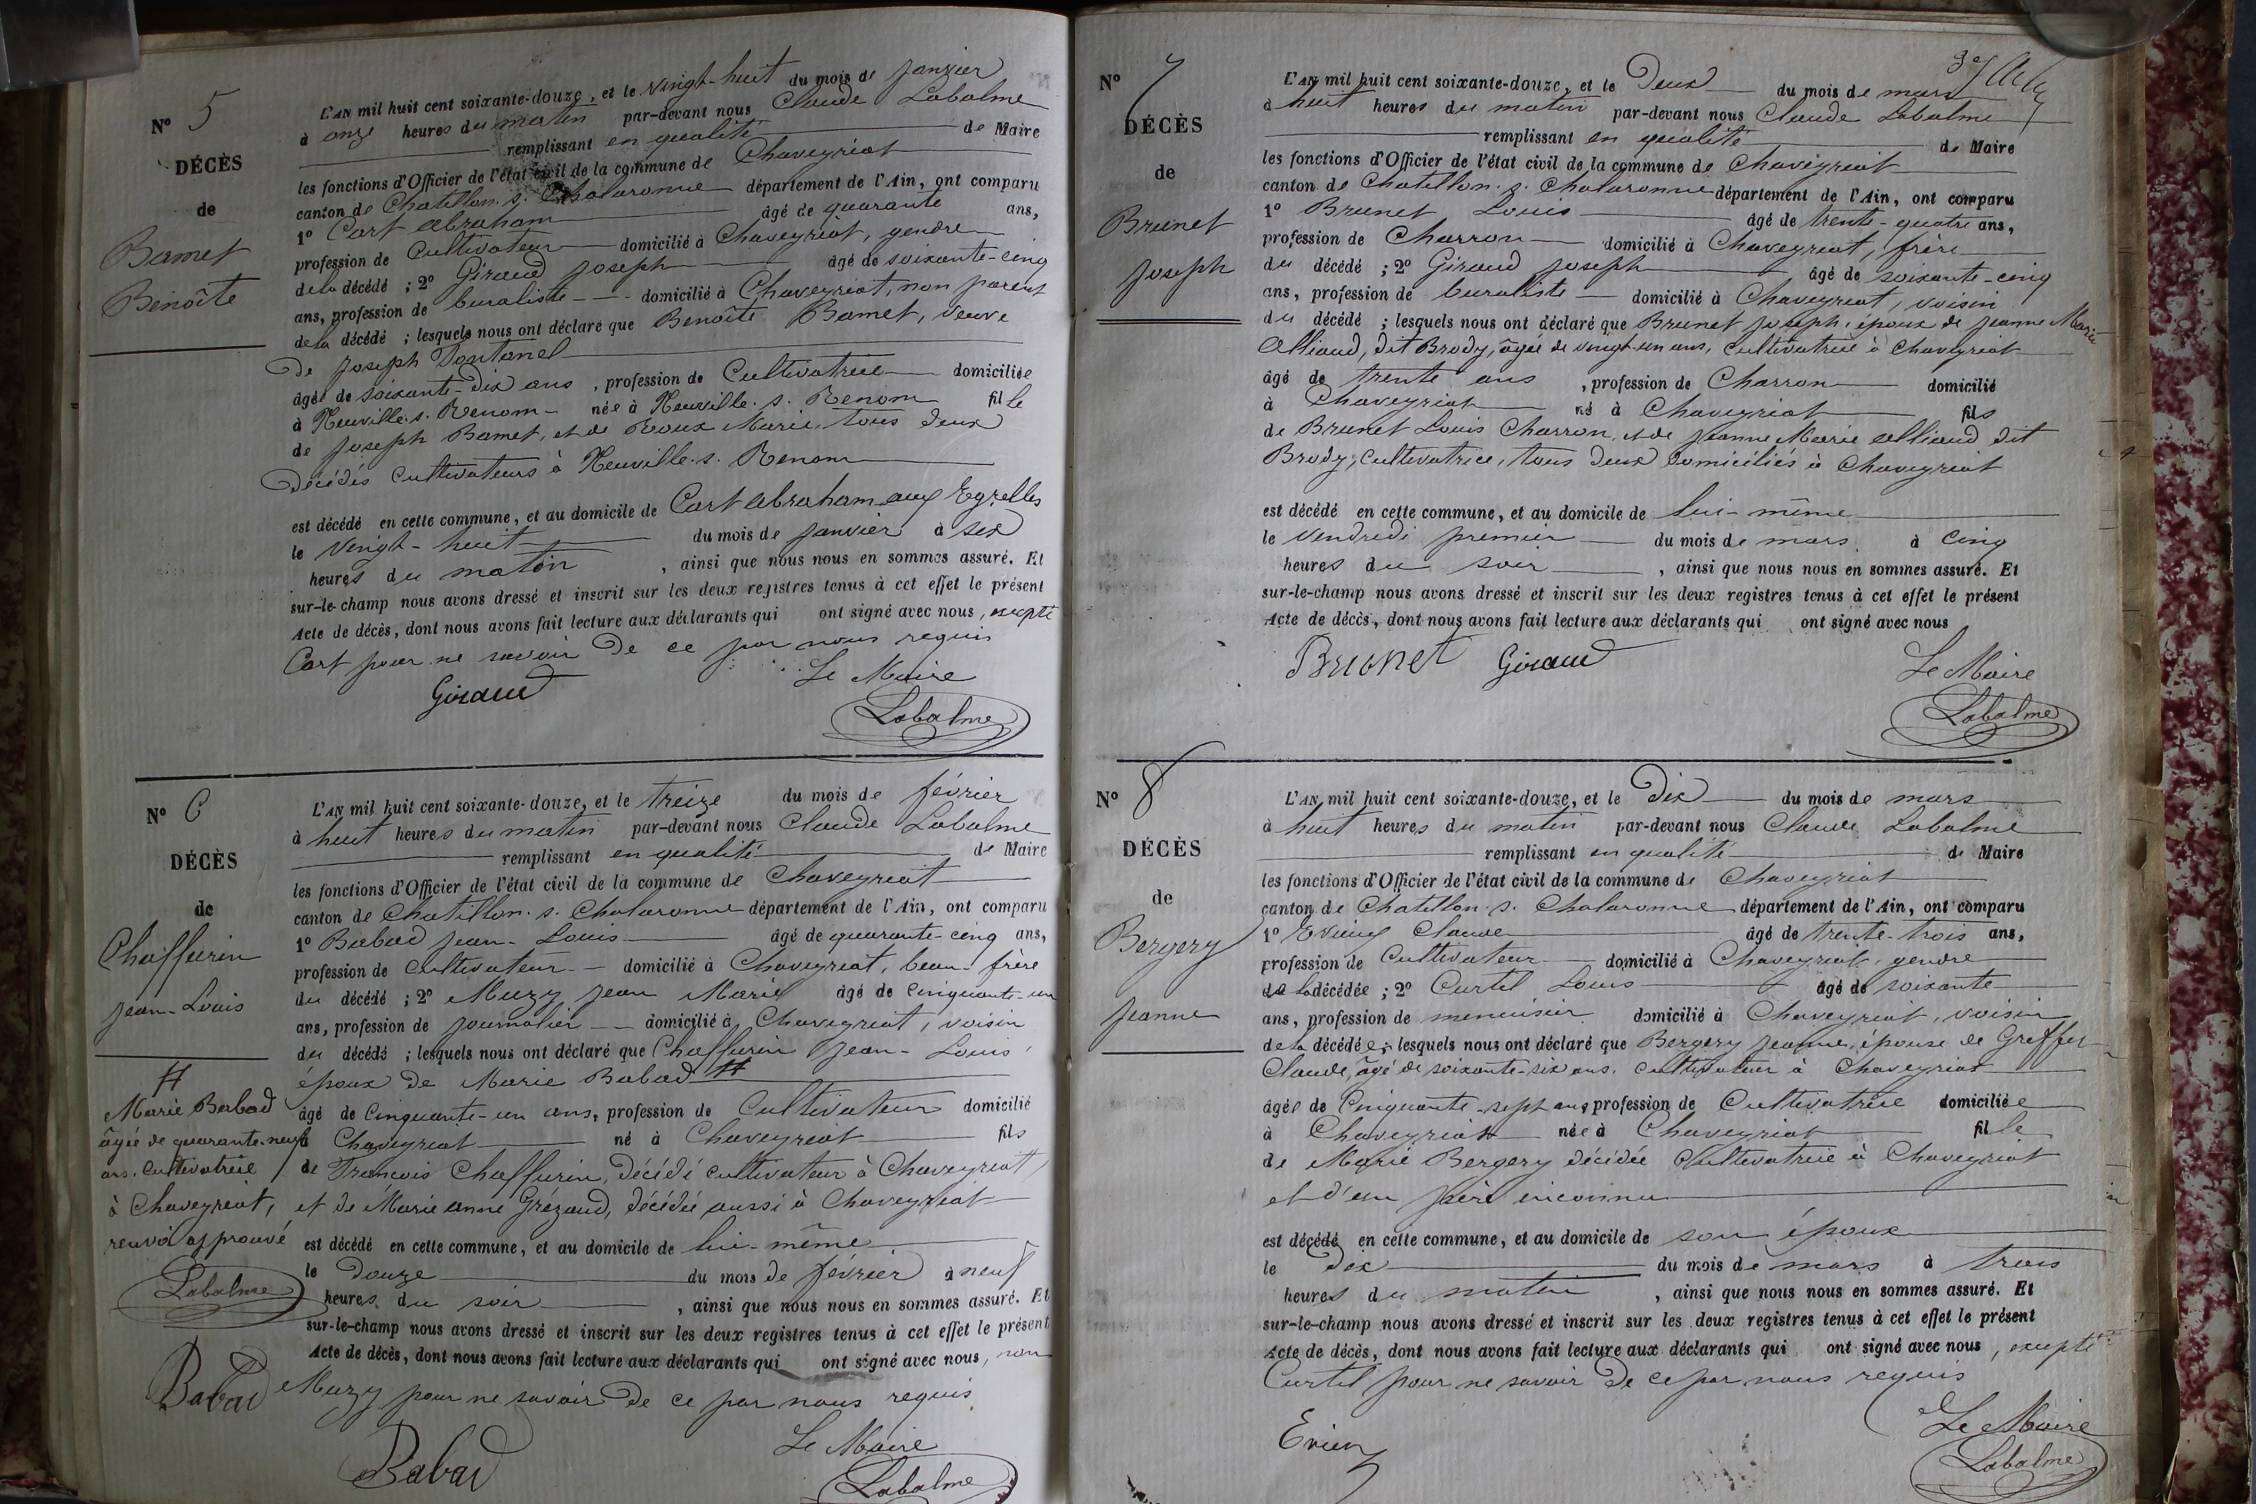 N° 5
DÉCÈS
de
Bamet
Benoîte
L'AN mil huit cent soixante-douze, et le vingt-huit du mois de janvier
à onze heures du matin par-devant nous Claude Labalme
remplissant en qualité de Maire
les fonctions d'Officier de l'état civil de la commune de Chaveyriat
canton de Chatillon. s. Chalaronne département de l'Ain, ont comparu
1° Cart Abraham âgé de quarante ans,
profession de Cultivateur domicilié à Chaveyriat, gendre
de la décédé ; 2° Giraud Joseph âgé de soixante-cinq
ans, profession de buraliste domicilié à Chaveyriat, non parent
de la décédé ; lesquels nous ont déclaré que Benoîte Bamet, veuve
de Joseph Fontanel
âgé de soixante-dix ans, profession de Cultivatrice domiciliée
à Neuville. s. Renom née à Neuville. s. Renom fille
de Joseph Bamet, et de Roux Marie, tous deux
décédés cultivateurs à Neuville. s. Renom
est décédé en cette commune, et au domicile de Cart Abraham aux Egrelles
le vingt-huit du mois de janvier à six
heures du matin, ainsi que nous nous en sommes assuré. Et
sur-le-champ nous avons dressé et inscrit sur les deux registres tenus à cet effet le présent
Acte de décès, dont nous avons fait lecture aux déclarants qui ont signé avec nous, excepté
Cart pour ne savoir de ce par nous requis
Le Maire
Giraud
Labalme
N° 6
DÉCÈS
de
Chaffurin
Jean-Louis
L'AN mil huit cent soixante-douze, et le treize du mois de février
à huit heures du matin par-devant nous Claude Labalme
remplissant en qualité de Maire
les fonctions d'Officier de l'état civil de la commune de Chaveyriat
canton de Chatillon. s. Chalaronne département de l'Ain, ont comparu
1° Babad Jean-Louis âgé de quarante-cinq ans,
profession de cultivateur domicilié à Chaveyriat, beau-frère
du décédé ; 2° Muzy Jean Marie âgé de cinquante-un
ans, profession de journalier domicilié à Chaveyriat, voisin
du décédé ; lesquels nous ont déclaré que Chaffurin Jean-Louis,
époux de Marie Babad #
âgé de cinquante-un ans, profession de Cultivateur domicilié
à Chaveyriat né à Chaveyriat fils
de François Chaffurin, décédé cultivateur à Chaveyriat,
et de Marie Anne Grézaud, décédée aussi à Chaveyriat
est décédé en cette commune, et au domicile de lui-même
le douze du mois de février à neuf
heures du soir, ainsi que nous nous en sommes assuré. Et
sur-le-champ nous avons dressé et inscrit sur les deux registres tenus à cet effet le présent
Acte de décès, dont nous avons fait lecture aux déclarants qui ont signé avec nous, non
Muzy pour ne savoir de ce par nous requis
Le Maire
Babad
Labalme
#
Marie Babad
âgée de quarante-neuf
ans. Cultivatrice
à Chaveyriat,
renvoi approuvé
Labalme
Babad
N° 7
DÉCÈS
de
Brunet
Joseph
L'AN mil huit cent soixante-douze, et le Deux du mois de mars
à huit heures du matin par-devant nous Claude Labalme
remplissant en qualité de Maire
les fonctions d'Officier de l'état civil de la commune de Chaveyriat
canton de Chatillon. s. Chalaronne département de l'Ain, ont comparu
1° Brunet Louis âgé de trente-quatre ans,
profession de Charron domicilié à Chaveyriat, frère
du décédé ; 2° Giraud Joseph âgé de soixante-cinq
ans, profession de buraliste domicilié à Chaveyriat, voisin
du décédé ; lesquels nous ont déclaré que Brunet Joseph, époux de Jeanne Marie
Alliaud, dit Brody, âgée de vingt-un ans, cultivatrice à Chaveyriat
âgé de trente ans, profession de Charron domicilié
à Chaveyriat né à Chaveyriat fils
de Brunet Louis Charron, et de Jeanne Marie Alliaud dit
Brody, cultivatrice, tous deux domiciliés à Chaveyriat
est décédé en cette commune, et au domicile de lui-même
le vendredi premier du mois de mars à cinq
heures du soir, ainsi que nous nous en sommes assuré. Et
sur-le-champ nous avons dressé et inscrit sur les deux registres tenus à cet effet le présent
Acte de décès, dont nous avons fait lecture aux déclarants qui ont signé avec nous
Brunet Giraud Le Maire
Labalme
N° 8
DÉCÈS
de
Bergery
Jeanne
L'AN mil huit cent soixante-douze, et le Dix du mois de mars
à huit heures du matin par-devant nous Claude Labalme
remplissant en qualité de Maire
les fonctions d'Officier de l'état civil de la commune de Chaveyriat
canton de Chatillon. s. Chalaronne département de l'Ain, ont comparu
1° Claude âgé de trente-trois ans,
profession de Cultivateur domicilié à Chaveyriat, gendre
de la décédée ; 2° Curtil Louis âgé de soixante
ans, profession de menuisier domicilié à Chaveyriat, voisin
de la décédée ; lesquels nous ont déclaré que Bergery Jeanne, épouse de Greffet
Claude, âgé de soixante-six ans, cultivateur à Chaveyriat
âgée de cinquante-sept ans profession de Cultivatrice domiciliée
à Chaveyriat née à Chaveyriat fille
de Marie Bergery décédée cultivatrice à Chaveyriat
et d'un père inconnu
est décédé en cette commune, et au domicile de son époux
le dix du mois de mars à trois
heures du matin, ainsi que nous nous en sommes assuré. Et
sur-le-champ nous avons dressé et inscrit sur les deux registres tenus à cet effet le présent
Acte de décès, dont nous avons fait lecture aux déclarants qui ont signé avec nous, excepté
Curtil pour ne savoir de ce par nous requis
Le Maire
Labalme